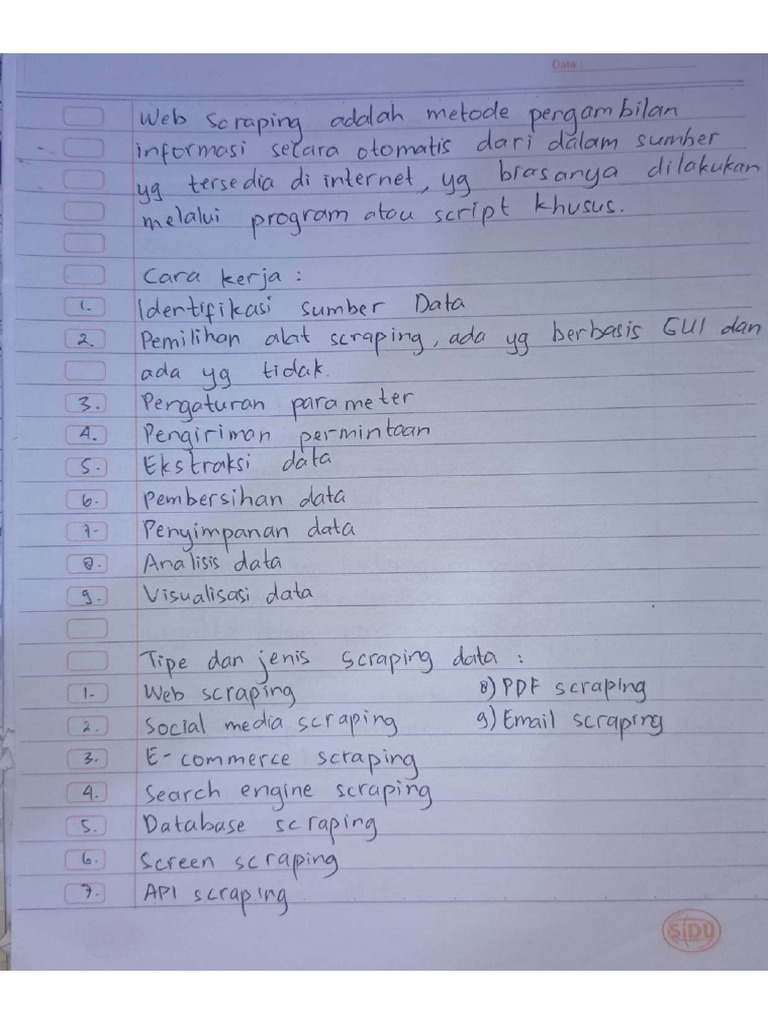 Date :
Web scraping adalah metode pengambilan
informasi secara otomatis dari dalam sumber
yg tersedia di internet, yg biasanya dilakukan
melalui program atau script khusus.
Cara kerja :
1. Identifikasi sumber Data
2. Pemilihan alat scraping, ada yg berbasis GUI dan
ada yg tidak.
3. Pengaturan parameter
4. Pengiriman permintaan
5. Ekstraksi data
6. Pembersihan data
7. Penyimpanan data
8. Analisis data
9. Visualisasi data
Tipe dan jenis scraping data :
1. Web scraping 8) PDF scraping
2. Social media scraping 9) Email scraping
3. E-commerce scraping
4. Search engine scraping
5. Database scraping
6. Screen scraping
7. API scraping
SiDU